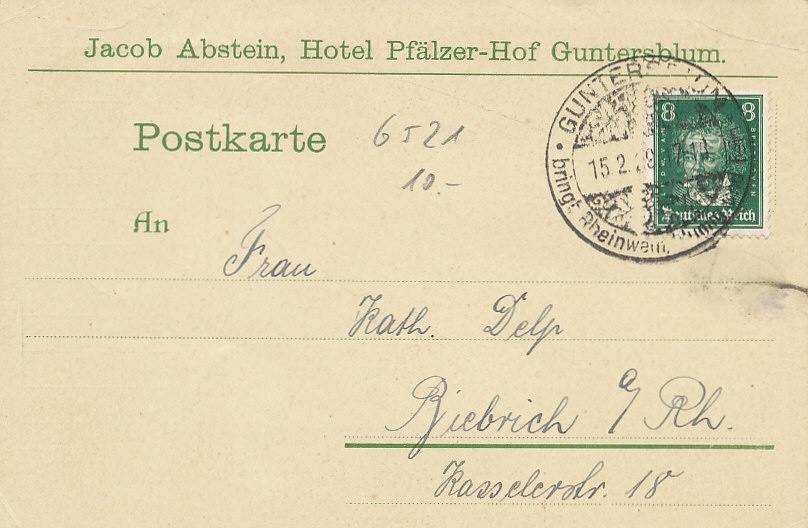 Jacob Abstein, Hotel Pfälzer-Hof Guntersblum.
Postkarte
6521
10.-
GUNTERSBLUM
15.2.29
bringt Rheinwein,
8 8
Deutsches Reich
An
Frau
Kath. Delp
Biebrich a/Rh.
Kasselerstr. 18